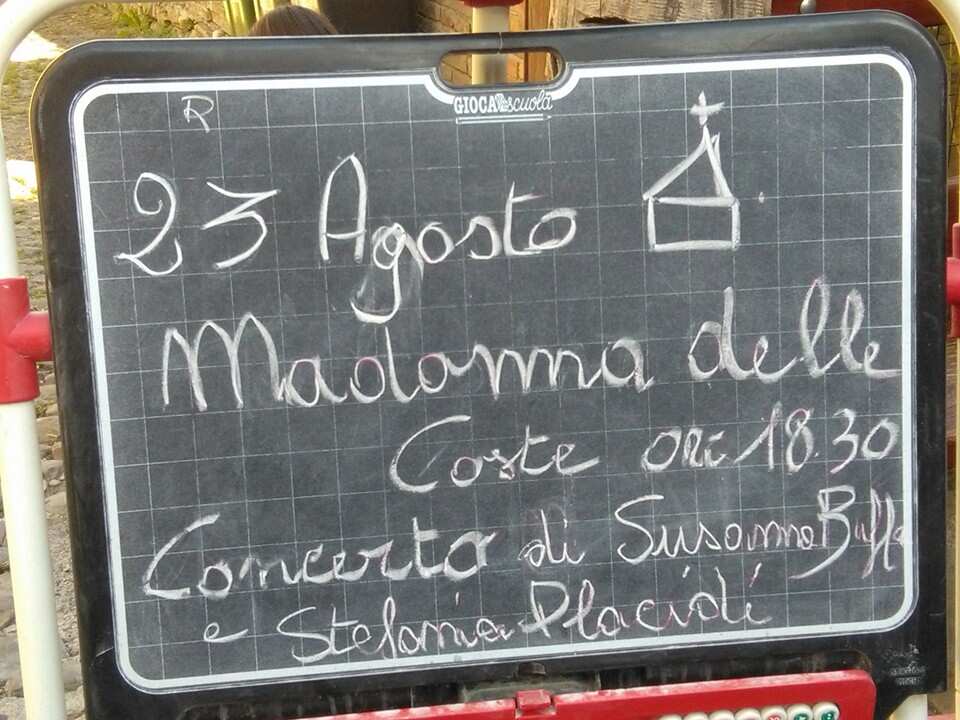 GIOCA scuola
R
23 Agosto
Madonna delle
Coste ore 18.30
Concerto di Susanna Buffa
e Stefania Placidi